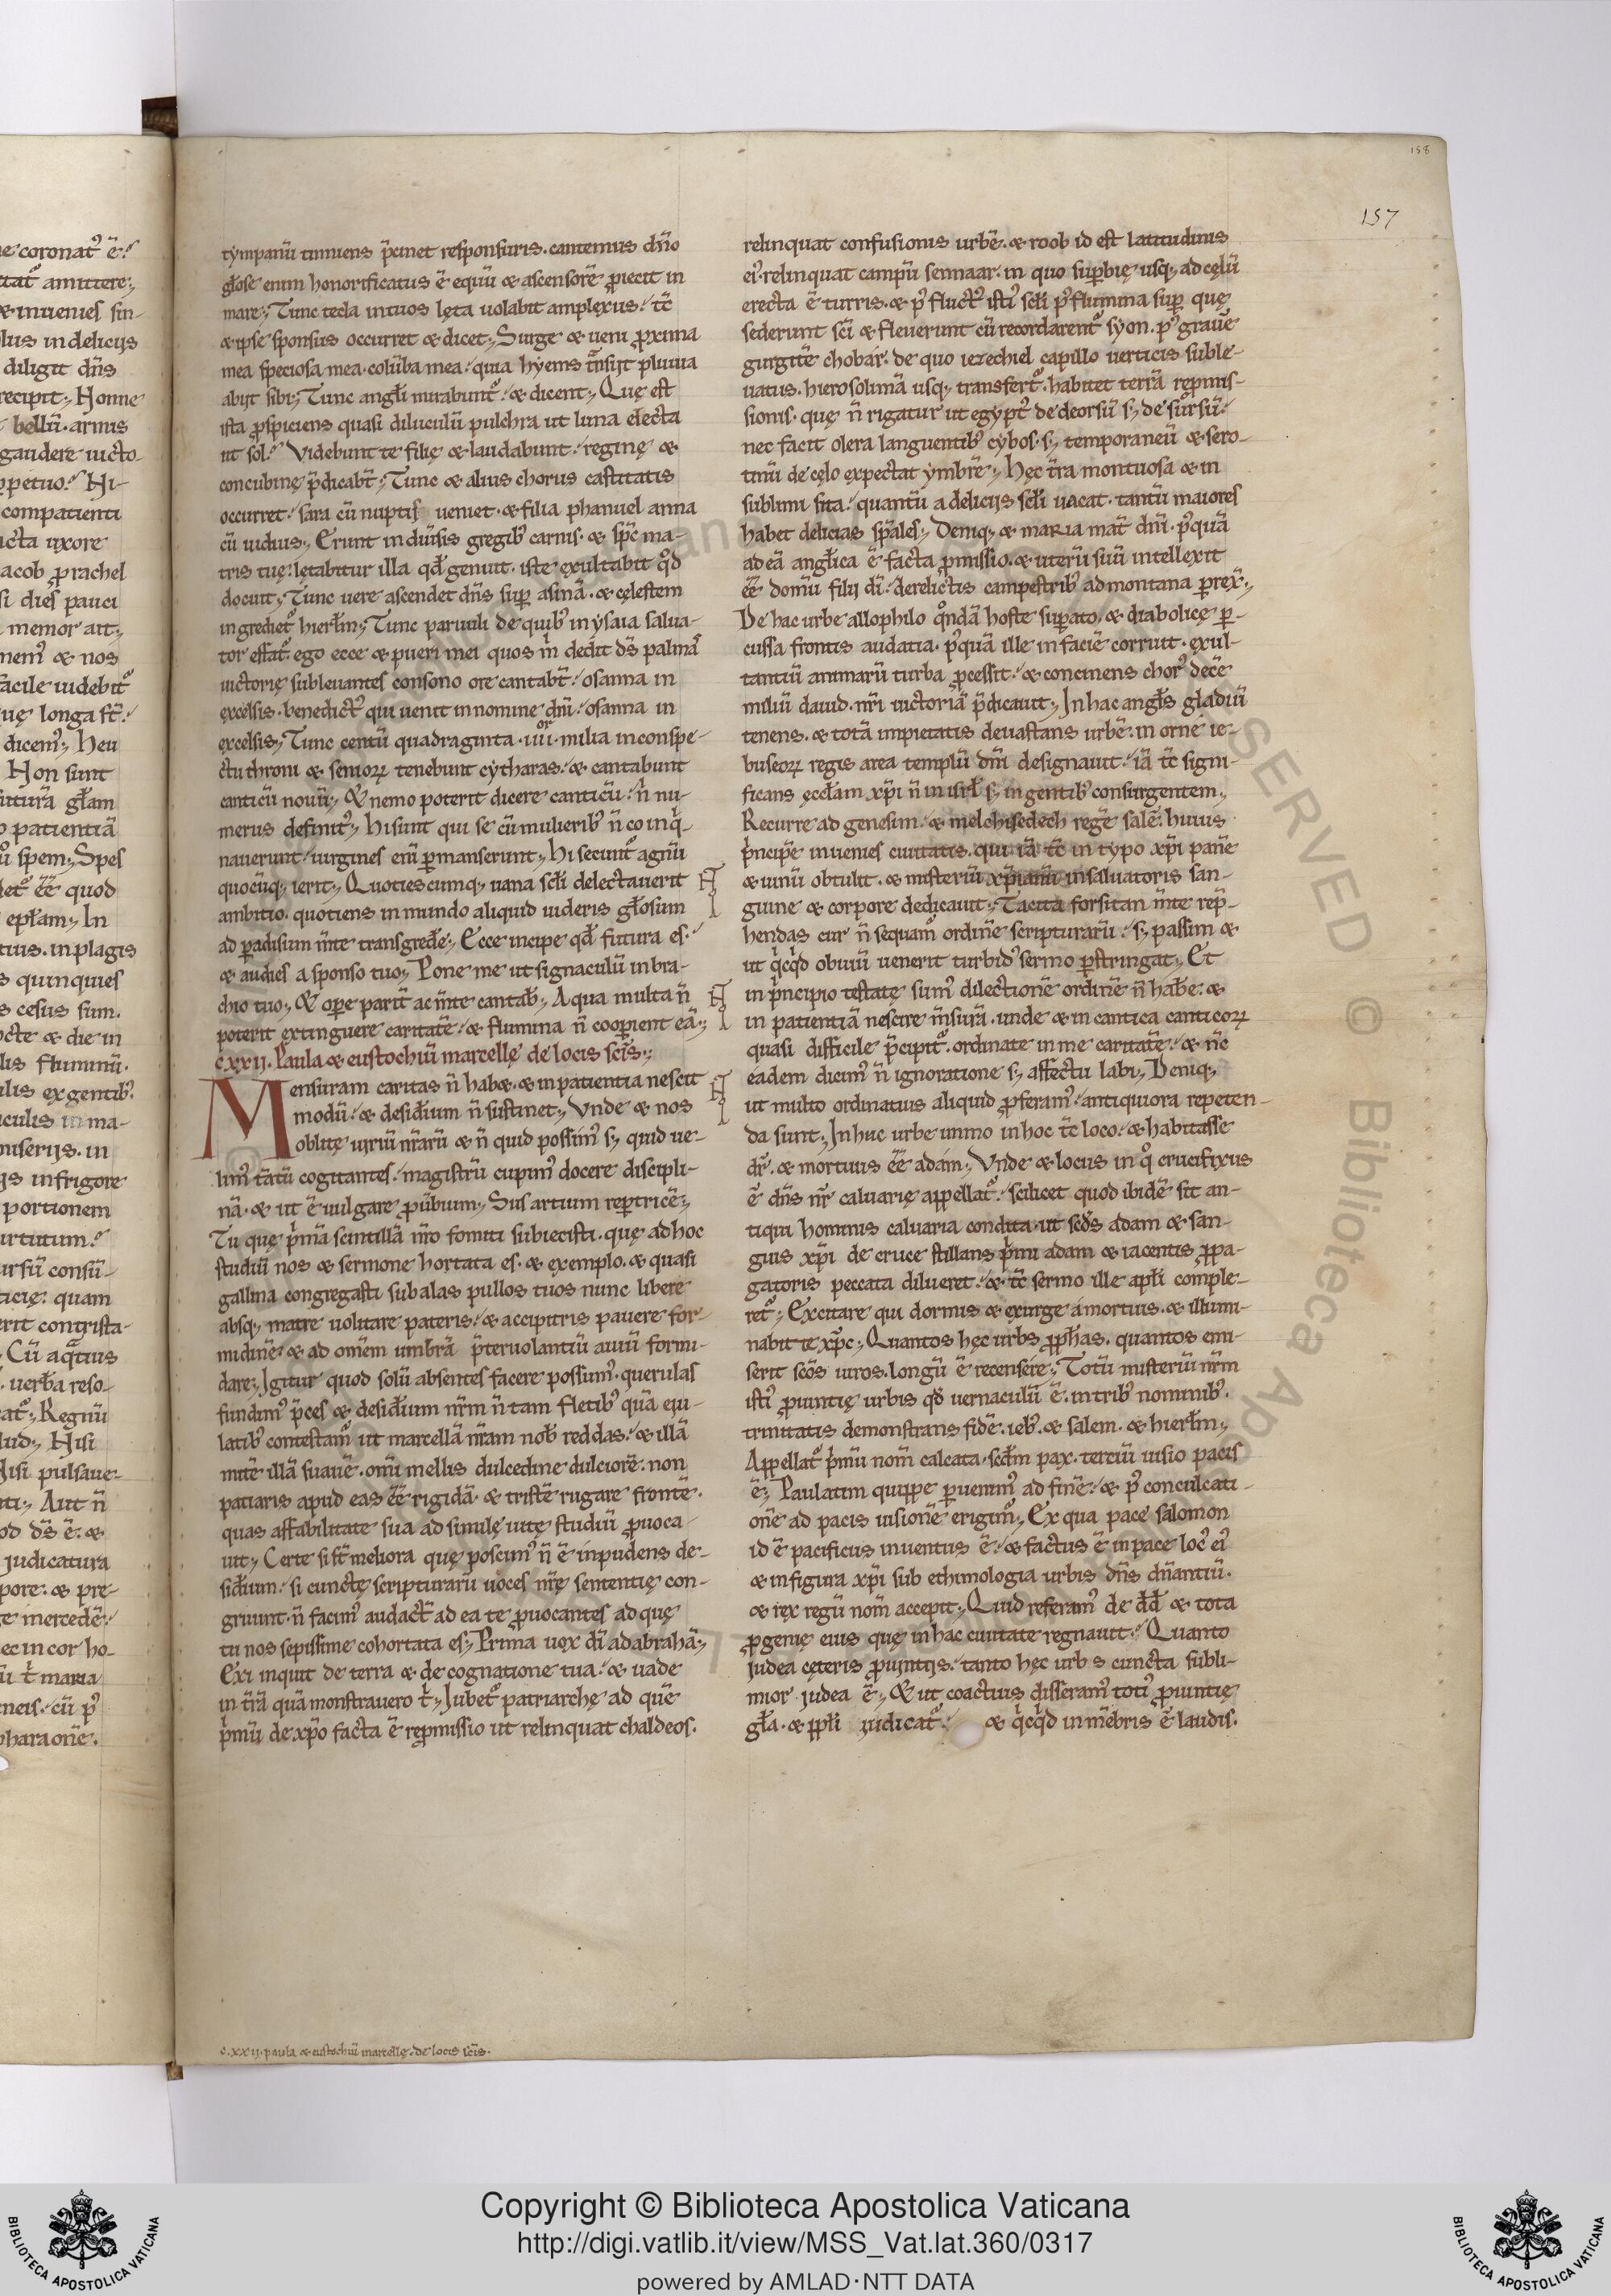 158
157
tympanũ tinniens p̃cinet responsuris. cantemus dño
gl̃ose enim honorificatus ẽ equũ & ascensorẽ proiecit in
mare; Tunc tecla in tuos lęta uolabit amplexus. tc̃
& ipse sponsus occurret & dicet; Surge & ueni proxima
mea speciosa mea. colũba mea. quia hyems t̃nsijt pluuia
abijt sibi; Tunc angl̃i mirabunt᷑. & dicent; Quę est
ista prospiciens quasi diluculũ pulchra ut luna electa
ut sol. Videbunt te filię & laudabunt. reginę &
concubinę p̃dicabt̃; Tunc & alius chorus castitatis
occurret. sara cũ nuptis ueniet. & filia phanuel anna
cũ uiduis; Erunt in diũsis gregib; carnis. & sp̃c ma-
tris tuę. lętabitur illa qd̃ genuit. iste exultabit qd̃
docuit; Tunc uere ascendet dñs sup asinã. & cęlestem
ingrediet᷑ hierl̃m; Tunc paruuli de quib; in ysaia salua-
tor effat᷑. ego ecce & pueri mei quos m̃ dedit d̃s palmã
uictorię subleuantes consono ore cantabt̃. osanna in
excelsis. benedict᷒ qui uenit in nomine dñi. osanna in
excelsis; Tunc centũ quadraginta. iiii. milia in conspe-
ctu throni & senioꝝ tenebunt cytharas. & cantabunt
canticũ nouũ; & nemo poterit dicere canticũ. ñ nu-
merus definit᷒; Hi sunt qui se cũ mulierib; ñ coinq̃-
nauerunt. uirgines eni permanserunt; Hi secunt᷑ agnũ
quocũq; ierit; Quotiescumq; uana scl̃i delectauerit
ambitio. quotiens in mundo aliquid uideris gl̃osum
ad paradisum m̃te transgred̃e; Ecce incipe qd̃ futura es.
& audies a sponso tuo; Pone me ut signaculũ in bra-
chio tuo; & ope parit᷑ ac m̃te cantab̃; Aqua multa ñ
poterit extinguere caritatẽ. & flumina ñ cooperient eã;
cxxij. Paula & eustochiũ marcellę de locis scĩs;
Mensuram caritas ñ hab&. & inpatientia nescit
modũ. & desid̃ium ñ sustinet; Vnde & nos
oblitę uiriũ nr̃arũ & ñ quid possim᷒ s; quid ue-
lim᷒ tãtũ cogitantes. magistrũ cupim᷒ docere discipli-
nã. & ut ẽ uulgare prouerbium; Sus artium repertricẽ;
Tu quę p̃mã scintillã nr̃o fomiti subiecisti. quę ad hoc
studiũ nos & sermone hortata es. & exemplo. & quasi
gallina congregasti sub alas pullos tuos nunc libere
absq; matre uolitare pateris. & accipitris pauere for-
midinẽ. & ad omẽm umbrã p̃teruolantiũ auiũ formi-
dare; Igitur quod solũ absentes facere possum᷒. querulas
fundim᷒ p̃ces & desid̃ium nr̃m ñ tam fletib; quã eiu-
latib; contestam᷑ ut marcellã nr̃am nob̃ reddas. & illã
mitẽ illã suauẽ. omĩ mellis dulcedine dulciorẽ. non
patiaris apud eas ẽẽ rigidã. & tristẽ rugare frontẽ.
quas affabilitate sua ad similę uitę studiũ prouoca-
uit; Certe si st̃ meliora quę poscim᷒ ñ ẽ inpudens de-
sid̃ium. si cunctę scripturarũ uoces nr̃ę sententię con-
gruunt. ñ facim᷒ audact᷑ ad ea te prouocantes ad quę
tu nos sepissime cohortata es; Prima uox dĩ ad abrahã;
Exi inquit de terra & de cognatione tua. & uade
in t̃rã quã monstrauero t̃; Jubet᷑ patriarchę ad quẽ
p̃mũ de xp̃o facta ẽ repromissio ut relinquat chaldeos.
relinquat confusionis urbẽ. & roob id est latitudinis
ei᷒. relinquat campũ sennaar. in quo superbię usq; ad cęlũ
erecta ẽ turris. & p᷒ fluct᷒ isti᷒ scl̃i p᷒ flumina sup quę
sederunt scĩ & fleuerunt cũ recordarent᷑ syon. p᷒ grauẽ
gurgitẽ chobar. de quo iezechiel capillo uerticis suble-
uatus. hierosolimã usq; transfert᷑. habitet terrã repromis-
sionis. quę ñ rigatur ut egypt᷒ de deorsũ s; de sursũ.
nec facit olera languentib; cybos. s; temporaneũ & sero-
tinũ de cęlo expectat ymbrẽ; Hęc t̃ra montuosa & in
sublimi sita. quantũ a delicijs scl̃i uacat. tantũ maiores
habet delicias sp̃ales; Deniq; & maria mat̃ dñi. p᷒quã
ad eã angl̃ica ẽ facta promissio. & uterũ suũ intellexit
ẽẽ domũ filij dĩ. derelictis campestrib; ad montana perrex̃;
De hac urbe allophilo qondã hoste superato. & diabolicę per-
cussa frontis audatia. p᷒quã ille in faciẽ corruit. exul-
tantiũ animarũ turba processit. & concinens chor᷒ decẽ
miliũ dauid. nr̃i uictoriã p̃dicauit; In hac angl̃s gladiũ
tenens. & totã impietatis deuastans urbẽ. in orne ie-
buseoꝝ regis area templũ dñi designauit. iã tc̃ signi-
ficans eccl̃am xp̃i ñ in isrl̃ s; in gentib; consurgentem;
Recurre ad genesim. & melchisedech regẽ salẽ. huius
p̃ncipẽ inuenies ciuitatis. qui iã tc̃ in typo xp̃i panẽ
& uinũ obtulit. & misteriũ xp̃ianũ in saluatoris san-
guine & corpore dedicauit; Tacita forsitan m̃te rep̃-
hendas cur ñ sequam᷑ ordinẽ scripturarũ. s; passim &
ut q̃cq̃d obuiũ uenerit turbid᷒ sermo perstringat; Et
in p̃ncipio testate sum᷒ dilectionẽ ordinẽ ñ hab̃e. &
in patientiã nescire m̃surã. unde & in cantica canticoꝝ
quasi difficile p̃cipit᷑. ordinate in me caritatẽ. & ñc
eadem dicim᷒ ñ ignoratione s; affectu labi; Deniq;
ut multo ordinatius aliquid proferam᷒. antiquiora repeten-
da sunt; In huc urbe immo in hoc tc̃ loco. & habitasse
dr̃. & mortuus ẽẽ adam; Vnde & locus in qo crucifixus
ẽ dñs nr̃ caluarię appellat᷑. scilicet quod ibidẽ sit an-
tiqui hominis caluaria condita. ut scd̃s adam & san-
guis xp̃i de cruce stillans p̃mi adam & iacentis propa-
gatoris peccata dilueret. & tc̃ sermo ille apl̃i comple-
ret᷑; Excitare qui dormis & exurge a mortuis. & illumi-
nabit te xp̃c; Quantos hęc urbs proph̃as. quantos emi-
serit scõs uiros. longũ ẽ recensere; Totũ misteriũ nr̃m
isti᷒ prouintię urbis qd̃ uernaculũ ẽ. in trib; nominib;.
trinitatis demonstrans fidẽ. ieb᷒. & salem. & hierl̃m;
Appellat᷑ p̃mũ nom̃ calcata. scd̃m pax. terciũ uisio pacis
ẽ; Paulatim quippe peruenim᷒ ad finẽ. & p᷒ conculcati-
onẽ ad pacis uisionẽ erigim᷑; Ex qua pace salomon
id ẽ pacificus inuentus ẽ. & factus ẽ in pace loc᷒ ei᷒
& in figura xp̃i sub ethimologia urbis dñs dñantiũ.
& rex regũ nom̃ accepit; Quid referam᷒ de dd̃ & tota
progenię eius quę in hac ciuitate regnauit. Quanto
judea cęteris prouintijs. tanto hęc urbs cuncta subli-
mior judea ẽ; & ut coactius disseram᷒ toti᷒ prouintię
gl̃a. & ppl̃i judicat᷑. & q̃cq̃d in m̃ebris ẽ laudis.
c.xxij. paula & eustochiũ marcellę. de locis scĩs.
Copyright © Biblioteca Apostolica Vaticana
http://digi.vatlib.it/view/MSS_Vat.lat.360/0317
powered by AMLAD·NTT DATA
BIBLIOTECA APOSTOLICA VATICANA
BIBLIOTECA APOSTOLICA VATICANA